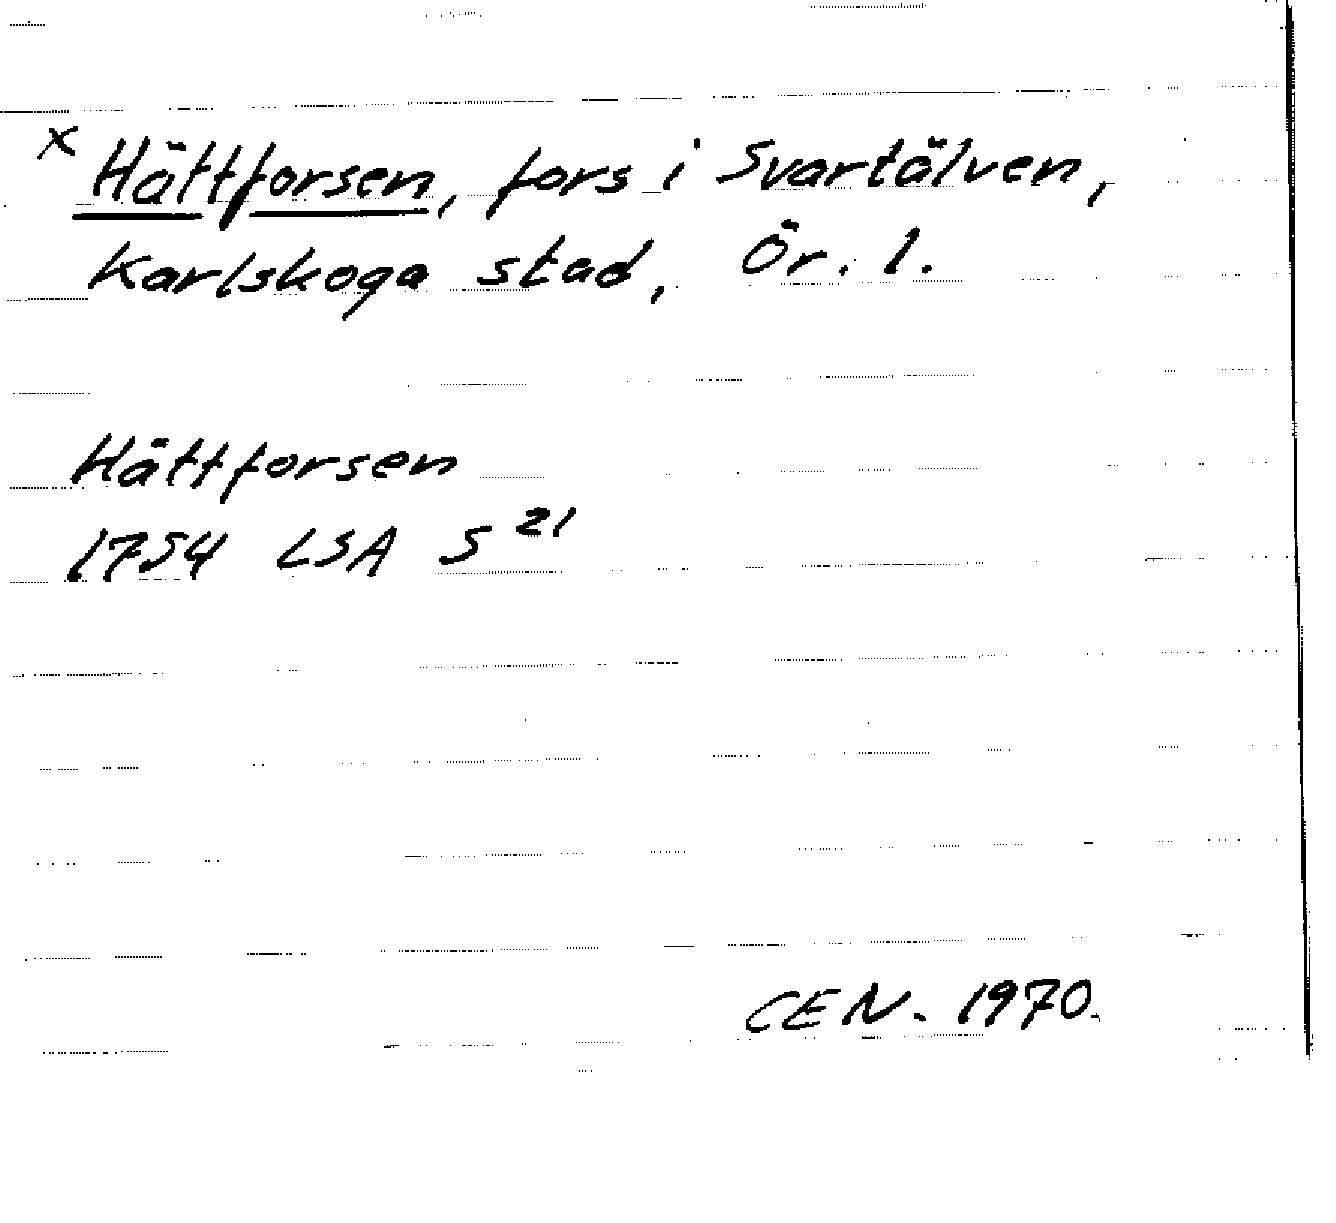 x Hättforsen, fors i Svartälven,
Karlskoga stad, Ör. l.
Hättforsen
1754 LSA S 21
CEN. 1970.